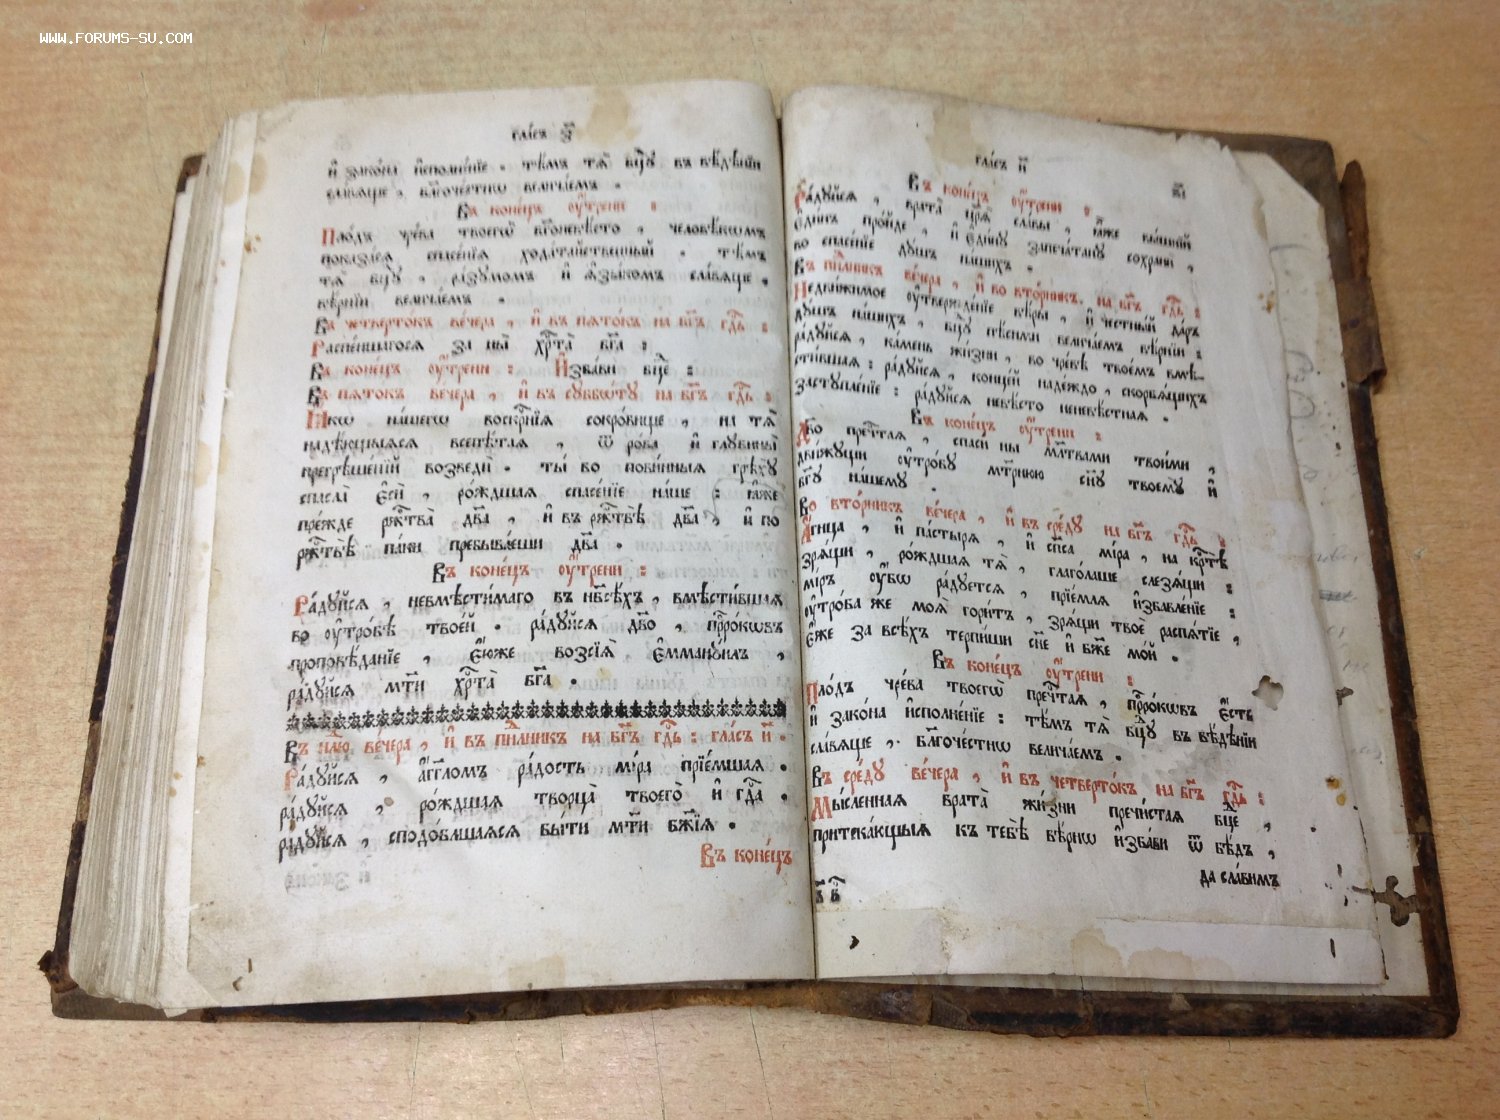 WWW.FORUMS-SU.COM
гла́съ з҃
и҆ зако́на и҆сполне́нїе . тѣ́мъ тѧ̀ бц҃ꙋ въ вѣ́дѣнїи
сла́вѧще , бл҃гоче́стнѡ велича́емъ .
Въ коне́цъ ᲂу҆́трени :
Пло́дъ чре́ва твоегѡ̀ бг҃оневѣ́сто , человѣ́кѡмъ
показа́сѧ спасе́нїѧ хода́тайственный . тѣ́мъ
тѧ̀ бц҃ꙋ , ра́зꙋмомъ и҆ ѧ҆зы́комъ сла́вѧще ,
вѣ́рнїи велича́емъ .
Въ четверто́къ ве́чера , и҆ въ пѧто́къ на бг҃ъ гд҇ь :
Распе́ншагосѧ за ны̀ хр҇та̀ бг҃а :
Въ коне́цъ ᲂу҆́трени : И҆зба́ви бц҃е :
Въ пѧто́къ ве́чера , и҆ въ сꙋббѡ́тꙋ на бг҃ъ гд҇ь :
Ꙗ҆́кѡ на́шегѡ воскр҇нїѧ сокро́вище , на тѧ̀
надѣ́ющыѧсѧ всепѣ́таѧ , ѿ ро́ва и҆ глꙋбины̀
прегрѣше́нїй возведѝ . ты́ бо пови́нныѧ грѣхꙋ̀
спасла̀ є҆сѝ , ро́ждшаѧ спасе́нїе на́ше : ꙗ҆́же
пре́жде рж҇тва̀ дв҃а , и҆ въ рж҇твѣ̀ дв҃а , и҆ по
рж҇твѣ̀ па́ки пребыва́еши дв҃а .
Въ коне́цъ ᲂу҆́трени :
Ра́дꙋйсѧ , невмѣсти́маго въ нб҃сѣ́хъ , вмѣсти́вшаѧ
во ᲂу҆тро́бѣ твое́й . ра́дꙋйсѧ дв҃о , прⷪ҇ро́кѡвъ
проповѣ́данїе , є҆́юже возсїѧ̀ є҆мманꙋ́илъ ,
ра́дꙋйсѧ мт҃и хр҇та̀ бг҃а .
Въ нлⷣю ве́чера , и҆ въ пнⷣлникъ на бг҃ъ гд҇ь : гла́съ и҃ .
Ра́дꙋйсѧ , а҆́гг҃ломъ ра́дость мі́ра прїе́мшаѧ .
ра́дꙋйсѧ , ро́ждшаѧ творца̀ твоего̀ и҆ гд҇а .
ра́дꙋйсѧ , сподо́бльшаѧсѧ бы́ти мт҃и бж҃їѧ .
Въ коне́цъ
гла́съ и҃
Въ коне́цъ ᲂу҆́трени :
Ра́дꙋйсѧ , врата̀ цр҃ѧ̀ сла́вы , ꙗ҆̀же вы́шнїй
є҆ди́нъ про́йде , и҆ є҆ди́нꙋ запеча́танꙋ сохранѝ ,
во спасе́нїе дꙋ́шъ на́шихъ .
Въ пнⷣлникъ ве́чера , и҆ во вто́рникъ на бг҃ъ гд҇ь :
Недви́жимое ᲂу҆твержде́нїе вѣ́ры , и҆ че́стный да́ръ
дꙋ́шъ на́шихъ , бц҃ꙋ пѣ́сньми велича́емъ вѣ́рнїи :
ра́дꙋйсѧ , ка́мень жи́зни , во чре́вѣ твое́мъ вмѣ-
сти́вшаѧ : ра́дꙋйсѧ , конце́й наде́ждо , скорбѧ́щихъ
застꙋпле́нїе : ра́дꙋйсѧ невѣ́сто неневѣ́стнаѧ .
Въ коне́цъ ᲂу҆́трени :
Дв҃о прⷱ҇таѧ , спасѝ ны̀ мл҃твами твои́ми ,
дви́жꙋщи ᲂу҆тро́бꙋ мт҃рнюю сн҃ꙋ твоемꙋ̀ и҆
бг҃ꙋ на́шемꙋ .
Во вто́рникъ ве́чера , и҆ въ сре́дꙋ на бг҃ъ гд҇ь :
А҆́гнца , и҆ па́стырѧ , и҆ сп҃са мі́ра , на кр҇тѣ̀
зрѧ́щи , ро́ждшаѧ тѧ̀ , глаго́лаше слезѧ́щи :
мі́ръ ᲂу҆́бѡ ра́дꙋетсѧ , прїе́млѧ и҆збавле́нїе :
ᲂу҆тро́ба же моѧ̀ гори́тъ , зрѧ́щи твоѐ распѧ́тїе ,
є҆́же за всѣ́хъ терпи́ши сн҃е и҆ бж҃е мо́й .
Въ коне́цъ ᲂу҆́трени :
Пло́дъ чре́ва твоегѡ̀ преⷱ҇таѧ , прⷪ҇ро́кѡвъ є҆́сть
и҆ зако́на и҆сполне́нїе : тѣ́мъ тѧ̀ бц҃ꙋ въ вѣ́дѣнїи
сла́вѧще , бл҃гоче́стнѡ велича́емъ .
Въ сре́дꙋ ве́чера , и҆ въ четверто́къ на бг҃ъ гд҇ь :
Мы́сленнаѧ врата̀ жи́зни пречи́стаѧ бц҃е ,
притека́ющыѧ къ тебѣ̀ вѣ́рнѡ и҆зба́ви ѿ бѣ́дъ ,
да сла́вимъ